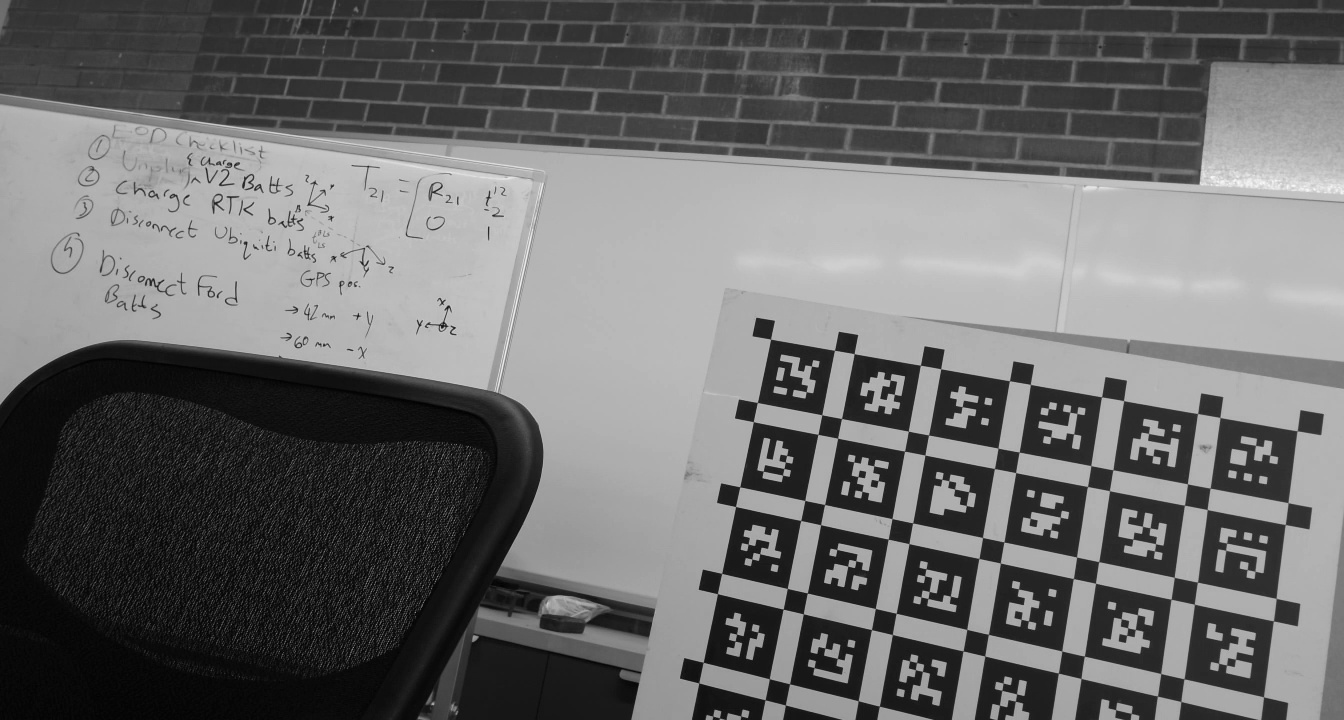 EOD Checklist
① Unplug & charge V2 Batts
② Charge RTK batts
③ Disconnect Ubiquiti batts
④ Disconnect Ford
Batts
T21 = [ R21 t12 -2
0 1
z
x
x z
y
GPS pos.
→ 42 mm + y
→ 60 mm - x
x
y z